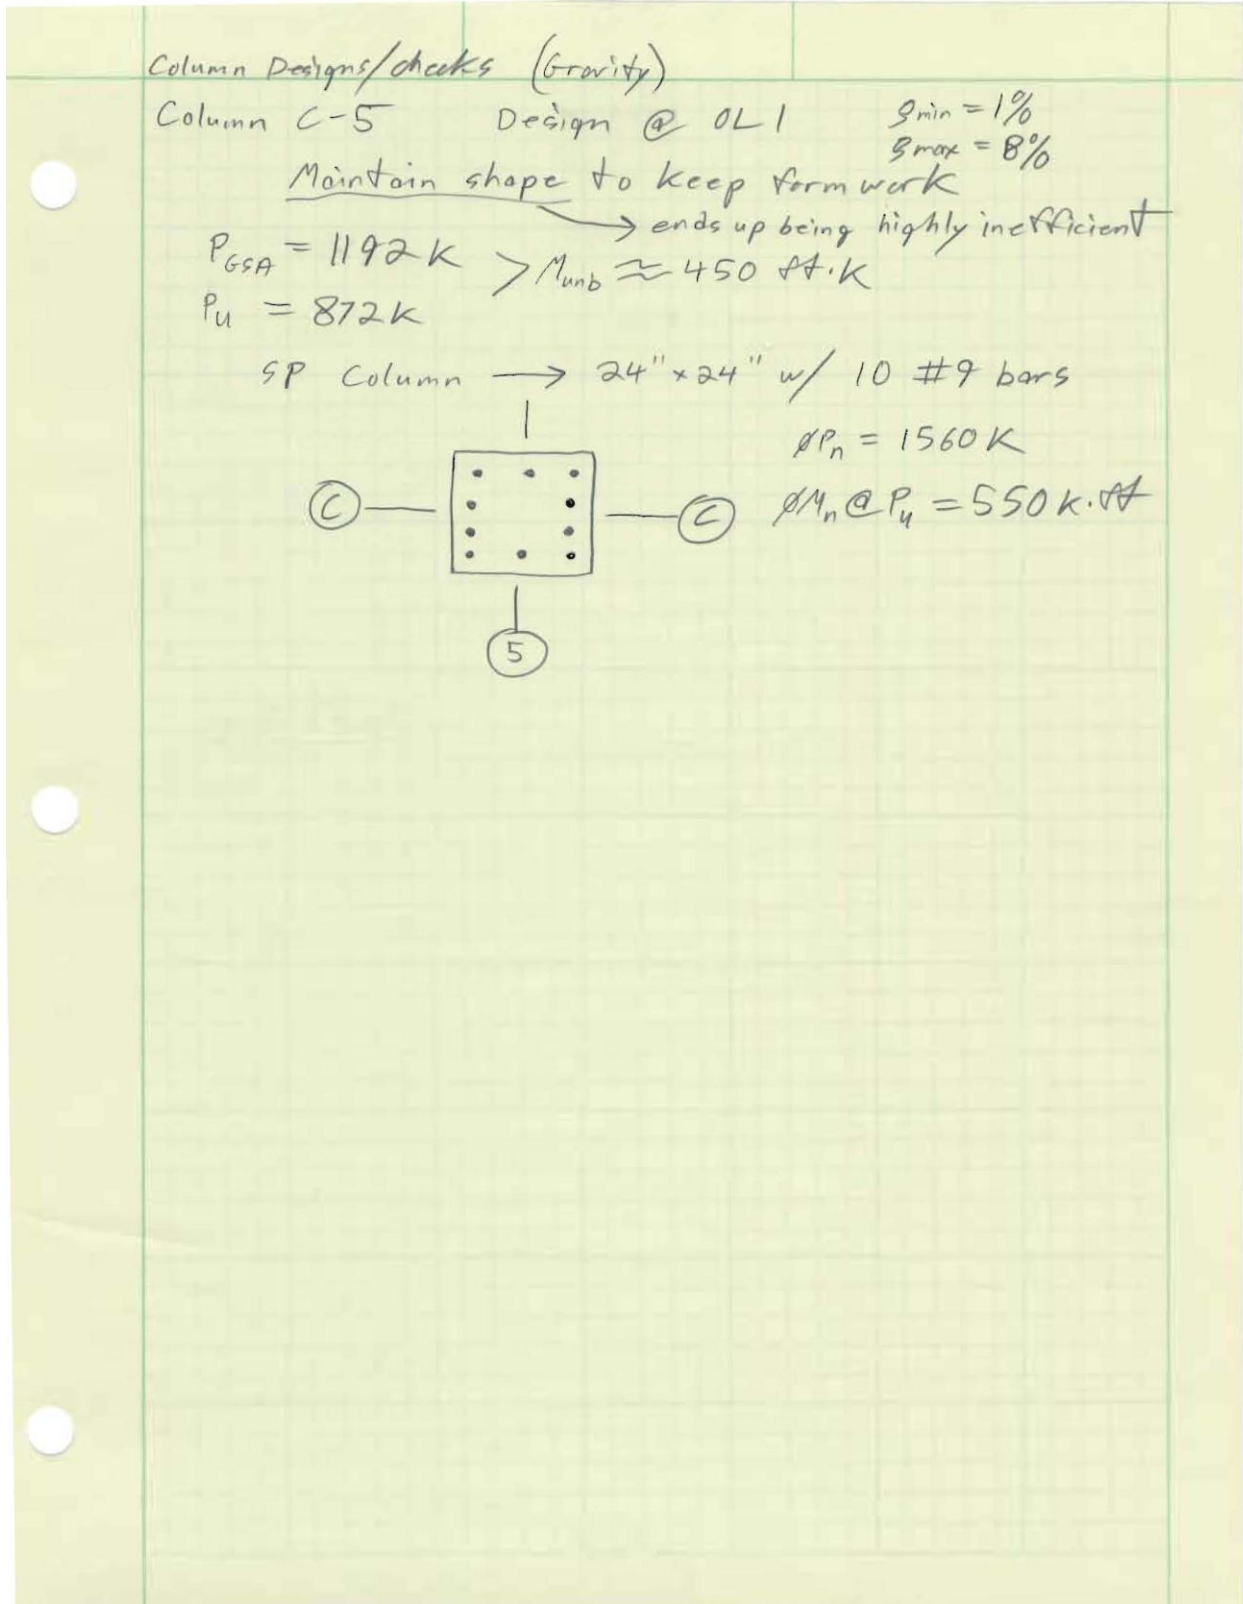 Column Designs/checks (Gravity)
Column C-5 Design @ OL1 ρmin = 1%
ρmax = 8%
Maintain shape to keep formwork
→ ends up being highly inefficient
PGSA = 1192K > Munb ≈ 450 ft·K
Pu = 872K
SP Column → 24"x24" w/ 10 #9 bars
øPn = 1560K
C C øMn @ Pu = 550K·ft
5